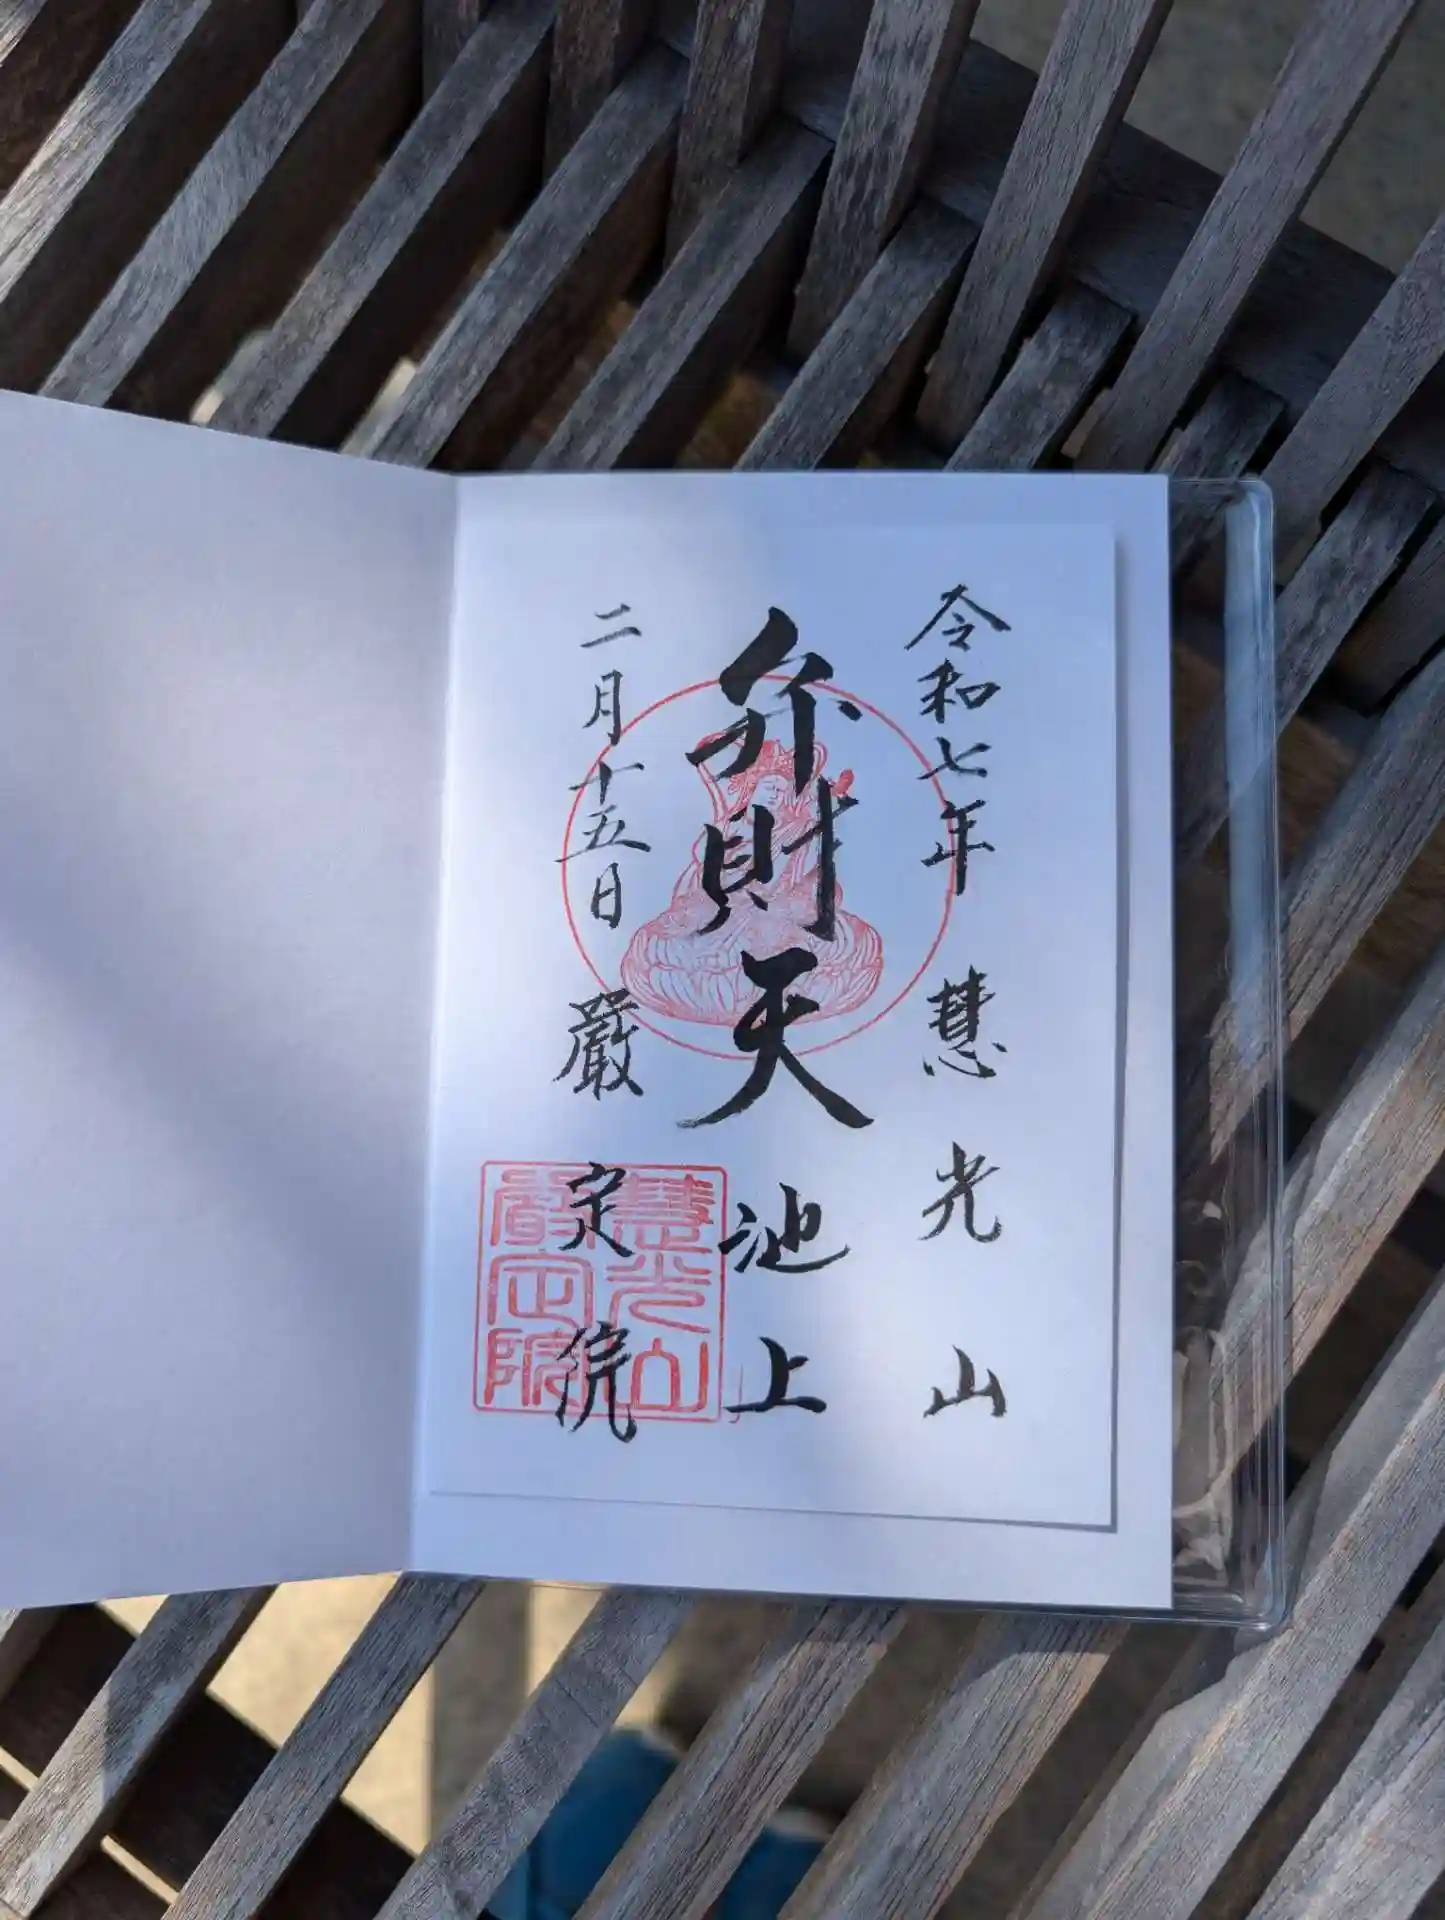 令和七年 慧光山
弁財天 池上
二月十五日 嚴定院
慧光山
嚴定院